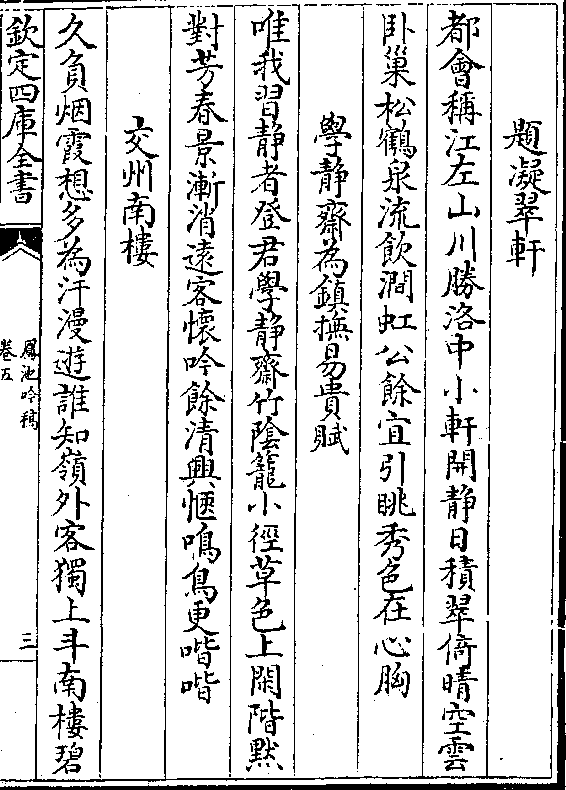 題凝翠軒
都會稱江左山川勝洛中小軒開靜日積翠倚晴空雲
卧巢松鶴泉流飲澗虹公餘宜引眺秀色在心胸
學靜齋為鎮撫易貴賦
唯我習靜者登君學靜齋竹陰籠小徑草色上閑階黙
對芳春景漸消遠客懷吟餘清興愜鳴鳥更喈喈
交州南樓
久負烟霞想多為汗漫遊誰知嶺外客獨上斗南樓碧
欽定四庫全書
鳳池吟稿
卷五
三